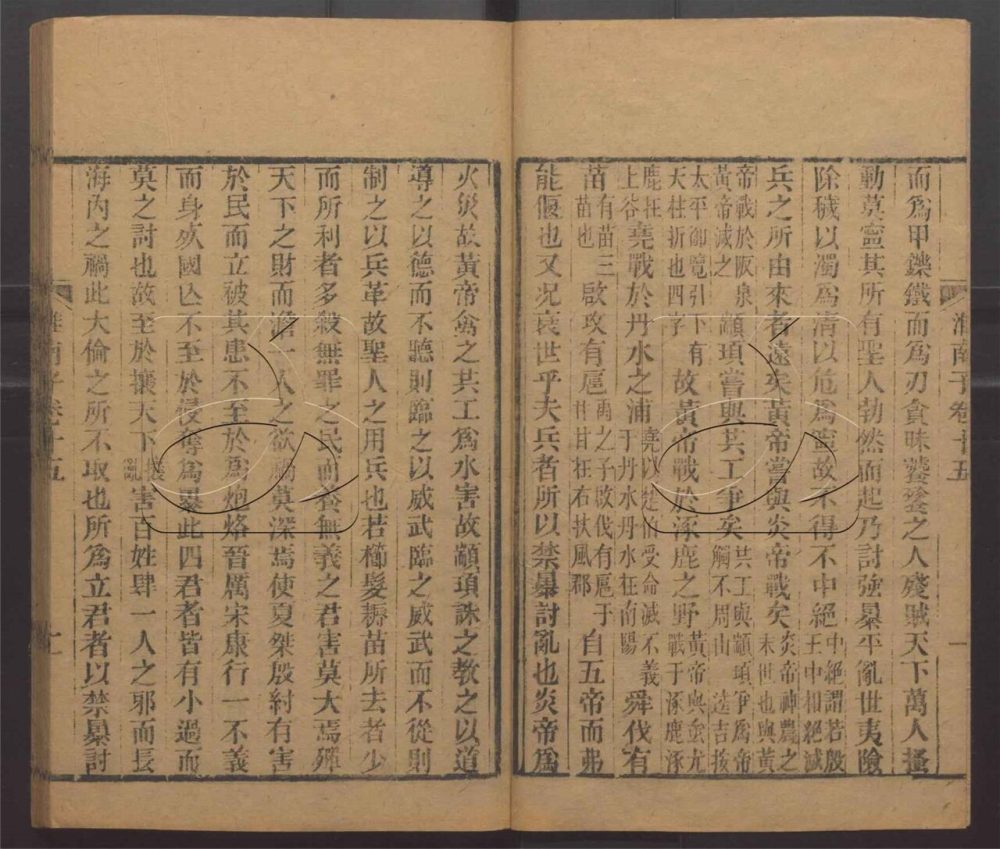 淮南子卷十五
一
而爲甲鑠鐵而爲刃貪昧饕餮之人殘賊天下萬人搔
動莫寧其所有聖人勃然而起乃討強暴平亂世夷險
除穢以濁爲清以危爲寧故不得不中絕中絕謂若殷王中相絕滅
兵之所由來者遠矣黃帝嘗與炎帝戰矣炎帝神農之末世也與黃
帝戰於阪泉黃帝滅之顓頊嘗與共工爭矣共工與顓頊爭爲帝觸不周山逵吉按
太平御覽引下有天柱折也四字故黃帝戰於涿鹿之野黃帝與蚩尤戰于涿鹿涿
鹿在上谷堯戰於丹水之浦堯以楚伯受命滅不義于丹水丹水在南陽舜伐有
苗有苗三苗也啟攻有扈禹之子啟伐有扈于甘甘在右扶風郡自五帝而弗
能偃也又况衰世乎夫兵者所以禁暴討亂也炎帝爲
火災故黃帝禽之共工爲水害故顓頊誅之教之以道
導之以德而不聽則臨之以威武臨之威武而不從則
制之以兵革故聖人之用兵也若櫛髮耨苗所去者少
而所利者多殺無罪之民而養無義之君害莫大焉殫
天下之財而澹一人之欲禍莫深焉使夏桀殷紂有害
於民而立被其患不至於爲炮烙晉厲宋康行一不義
而身死國亡不至於侵奪爲暴此四君者皆有小過而
莫之討也故至於攘天下攘亂害百姓肆一人之邪而長
海內之禍此大倫之所不取也所爲立君者以禁暴討
淮南子卷十五